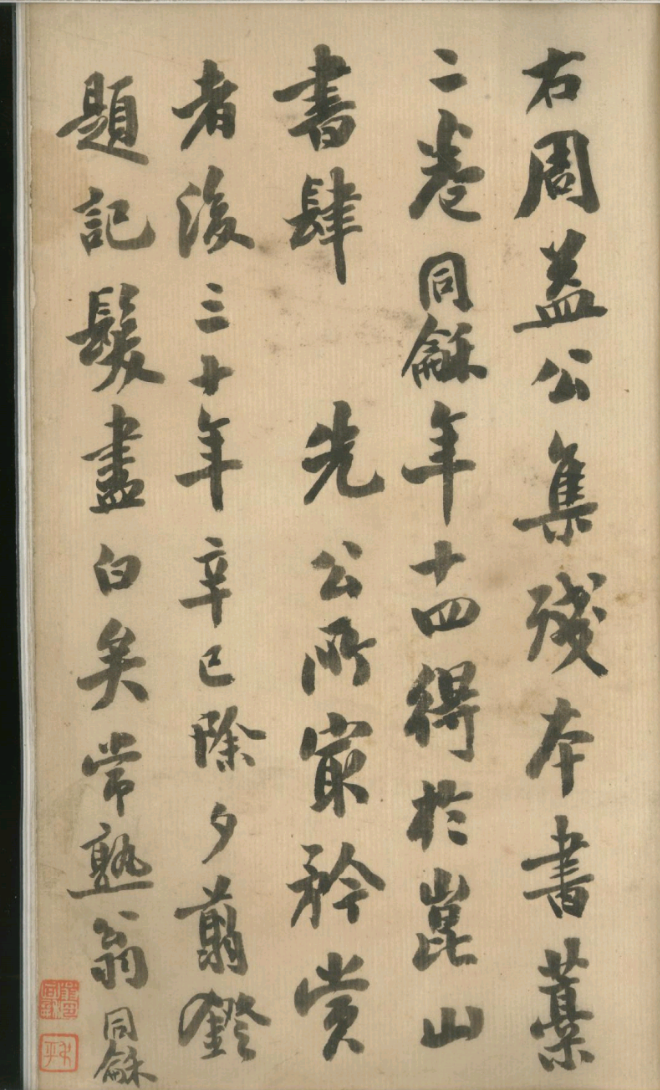 右周益公集殘本書藁
二卷同龢年十四得於崑山
書肆 先公所㝡矜賞
者後三十年辛巳除夕翦鐙
題記髮盡白矣常熟翁同龢